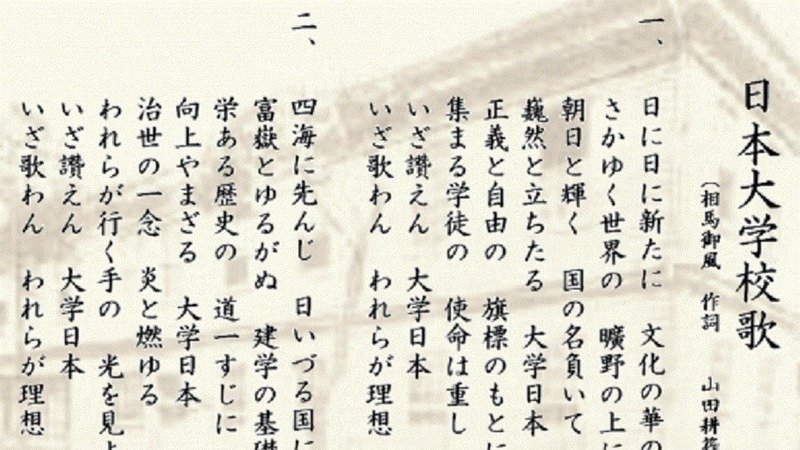 日本大学校歌
(相馬御風 作詞 山田耕筰
一、
日に日に新たに 文化の華の
さかゆく世界の 曠野の上に
朝日と輝く 国の名負いて
巍然と立ちたる 大学日本
正義と自由の 旗標のもとに
集まる学徒の 使命は重し
いざ讃えん 大学日本
いざ歌わん われらが理想
二、
四海に先んじ 日いづる国に
富嶽とゆるがぬ 建学の基礎
栄ある歴史の 道一すじに
向上やまざる 大学日本
治世の一念 炎と燃ゆる
われらが行く手の 光を見よ
いざ讃えん 大学日本
いざ歌わん われらが理想